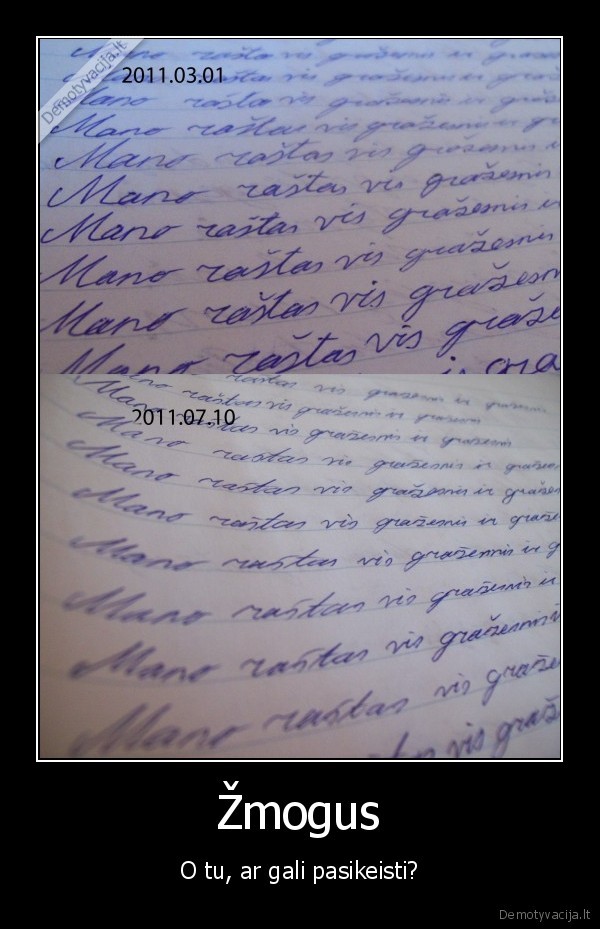 Demotyvacija.lt
2011.03.01
Mano raštas vis gražesnis ir
Mano raštas vis gražesnis ir
Mano raštas vis gražesnis ir
Mano raštas vis gražesnis ir
Mano raštas vis gražesnis
Mano raštas vis gražesnis
Mano raštas vis gražesnis ir
Mano raštas vis gražesnis
Mano raštas vis
Mano raštas vis
ir
2011.07.10
raštas vis gražesnis ir
Mano raštas vis gražesnis ir gražesnis
Mano raštas vis gražesnis ir gražesnis
Mano raštas vis gražesnis ir
Mano raštas vis gražesnis ir
Mano raštas vis gražesnis ir
Mano raštas vis gražesnis ir
Mano raštas vis gražesnis ir
Mano raštas vis gražesnis
Mano raštas vis
vis
Žmogus
O tu, ar gali pasikeisti?
Demotyvacija.lt